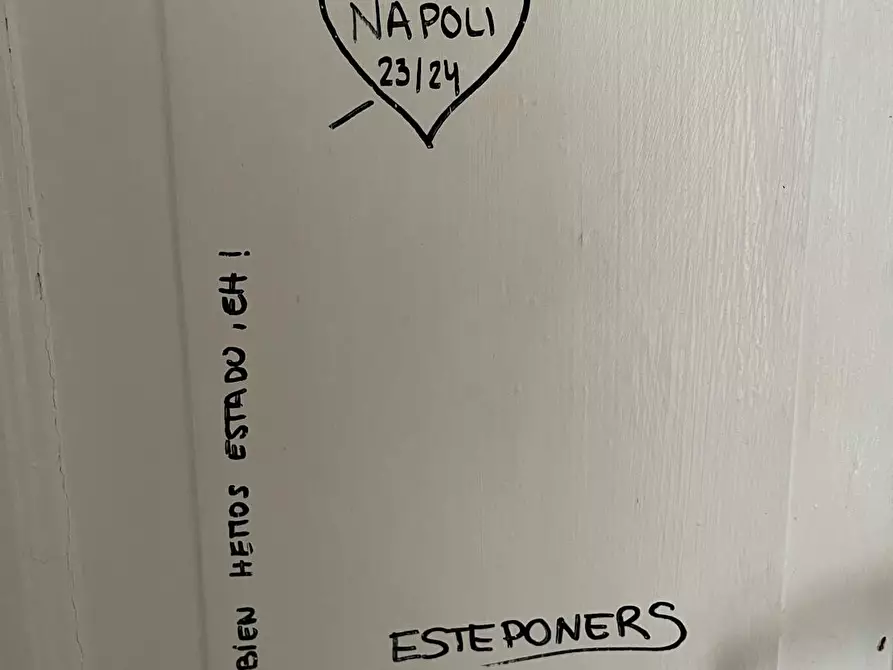 NAPOLI
23/24
BIEN HEMOS ESTADO, EH!
ESTEPONERS